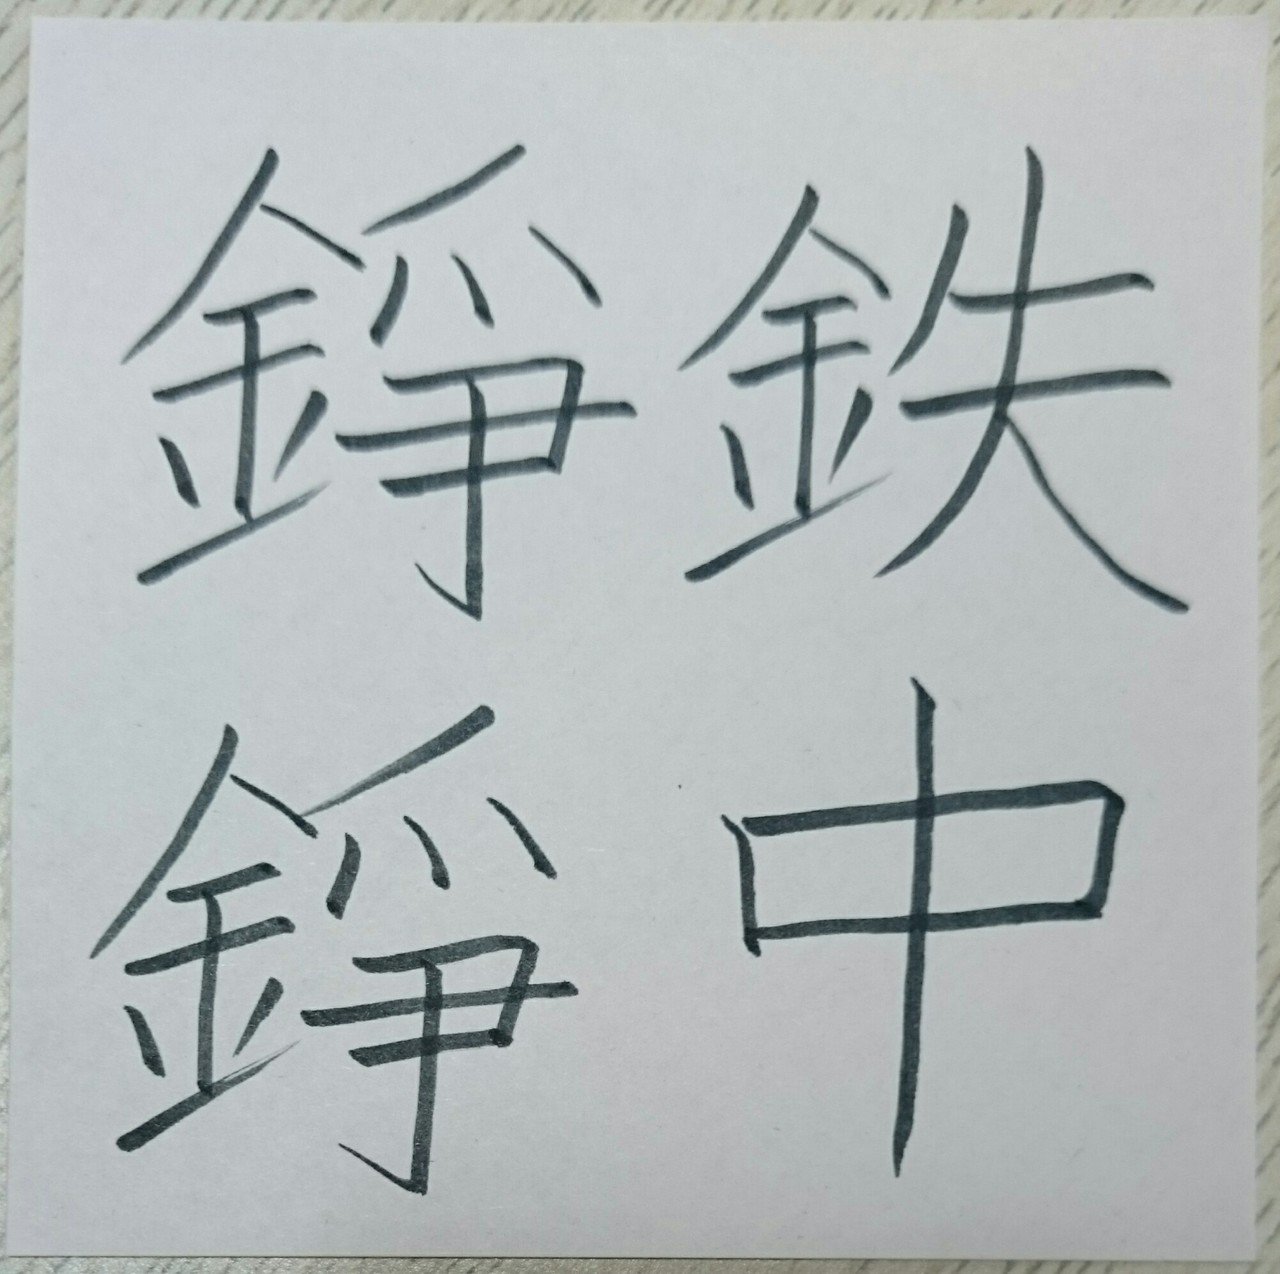 鉄中
錚錚